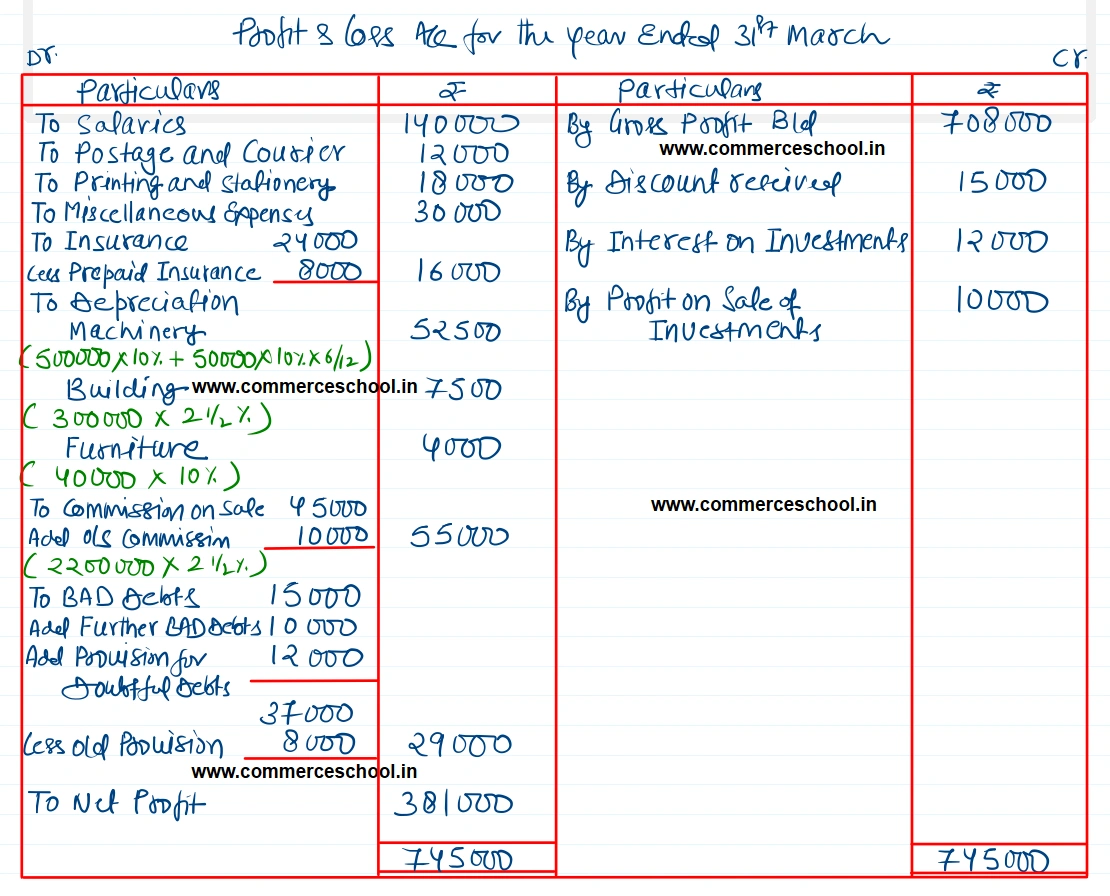 Profit & Loss A/c for the year Ended 31st March
Dr. Cr.
Particulars ₹ Particulars ₹
To Salaries 140000 By Gross Profit B/d 708000
www.commerceschool.in
To Postage and Courier 12000
To Printing and Stationery 18000 By Discount received 15000
To Miscellaneous Expenses 30000
To Insurance 24000 By Interest on Investments 12000
Less Prepaid Insurance 8000 16000
To Depreciation By Profit on Sale of 10000
Machinery 52500 Investments
(500000 x 10% + 50000 x 10% x 6/12)
Building www.commerceschool.in 7500
(300000 x 2 1/2 %)
Furniture 4000
(40000 x 10%)
To Commission on Sale 45000 www.commerceschool.in
Add O/S Commissin 10000 55000
(2200000 x 2 1/2 %)
To BAD Debts 15000
Add Further BAD Debts 10000
Add Provision for 12000
Doubtful Debts
37000
Less Old Provision 8000 29000
www.commerceschool.in
To Net Profit 381000
745000 745000